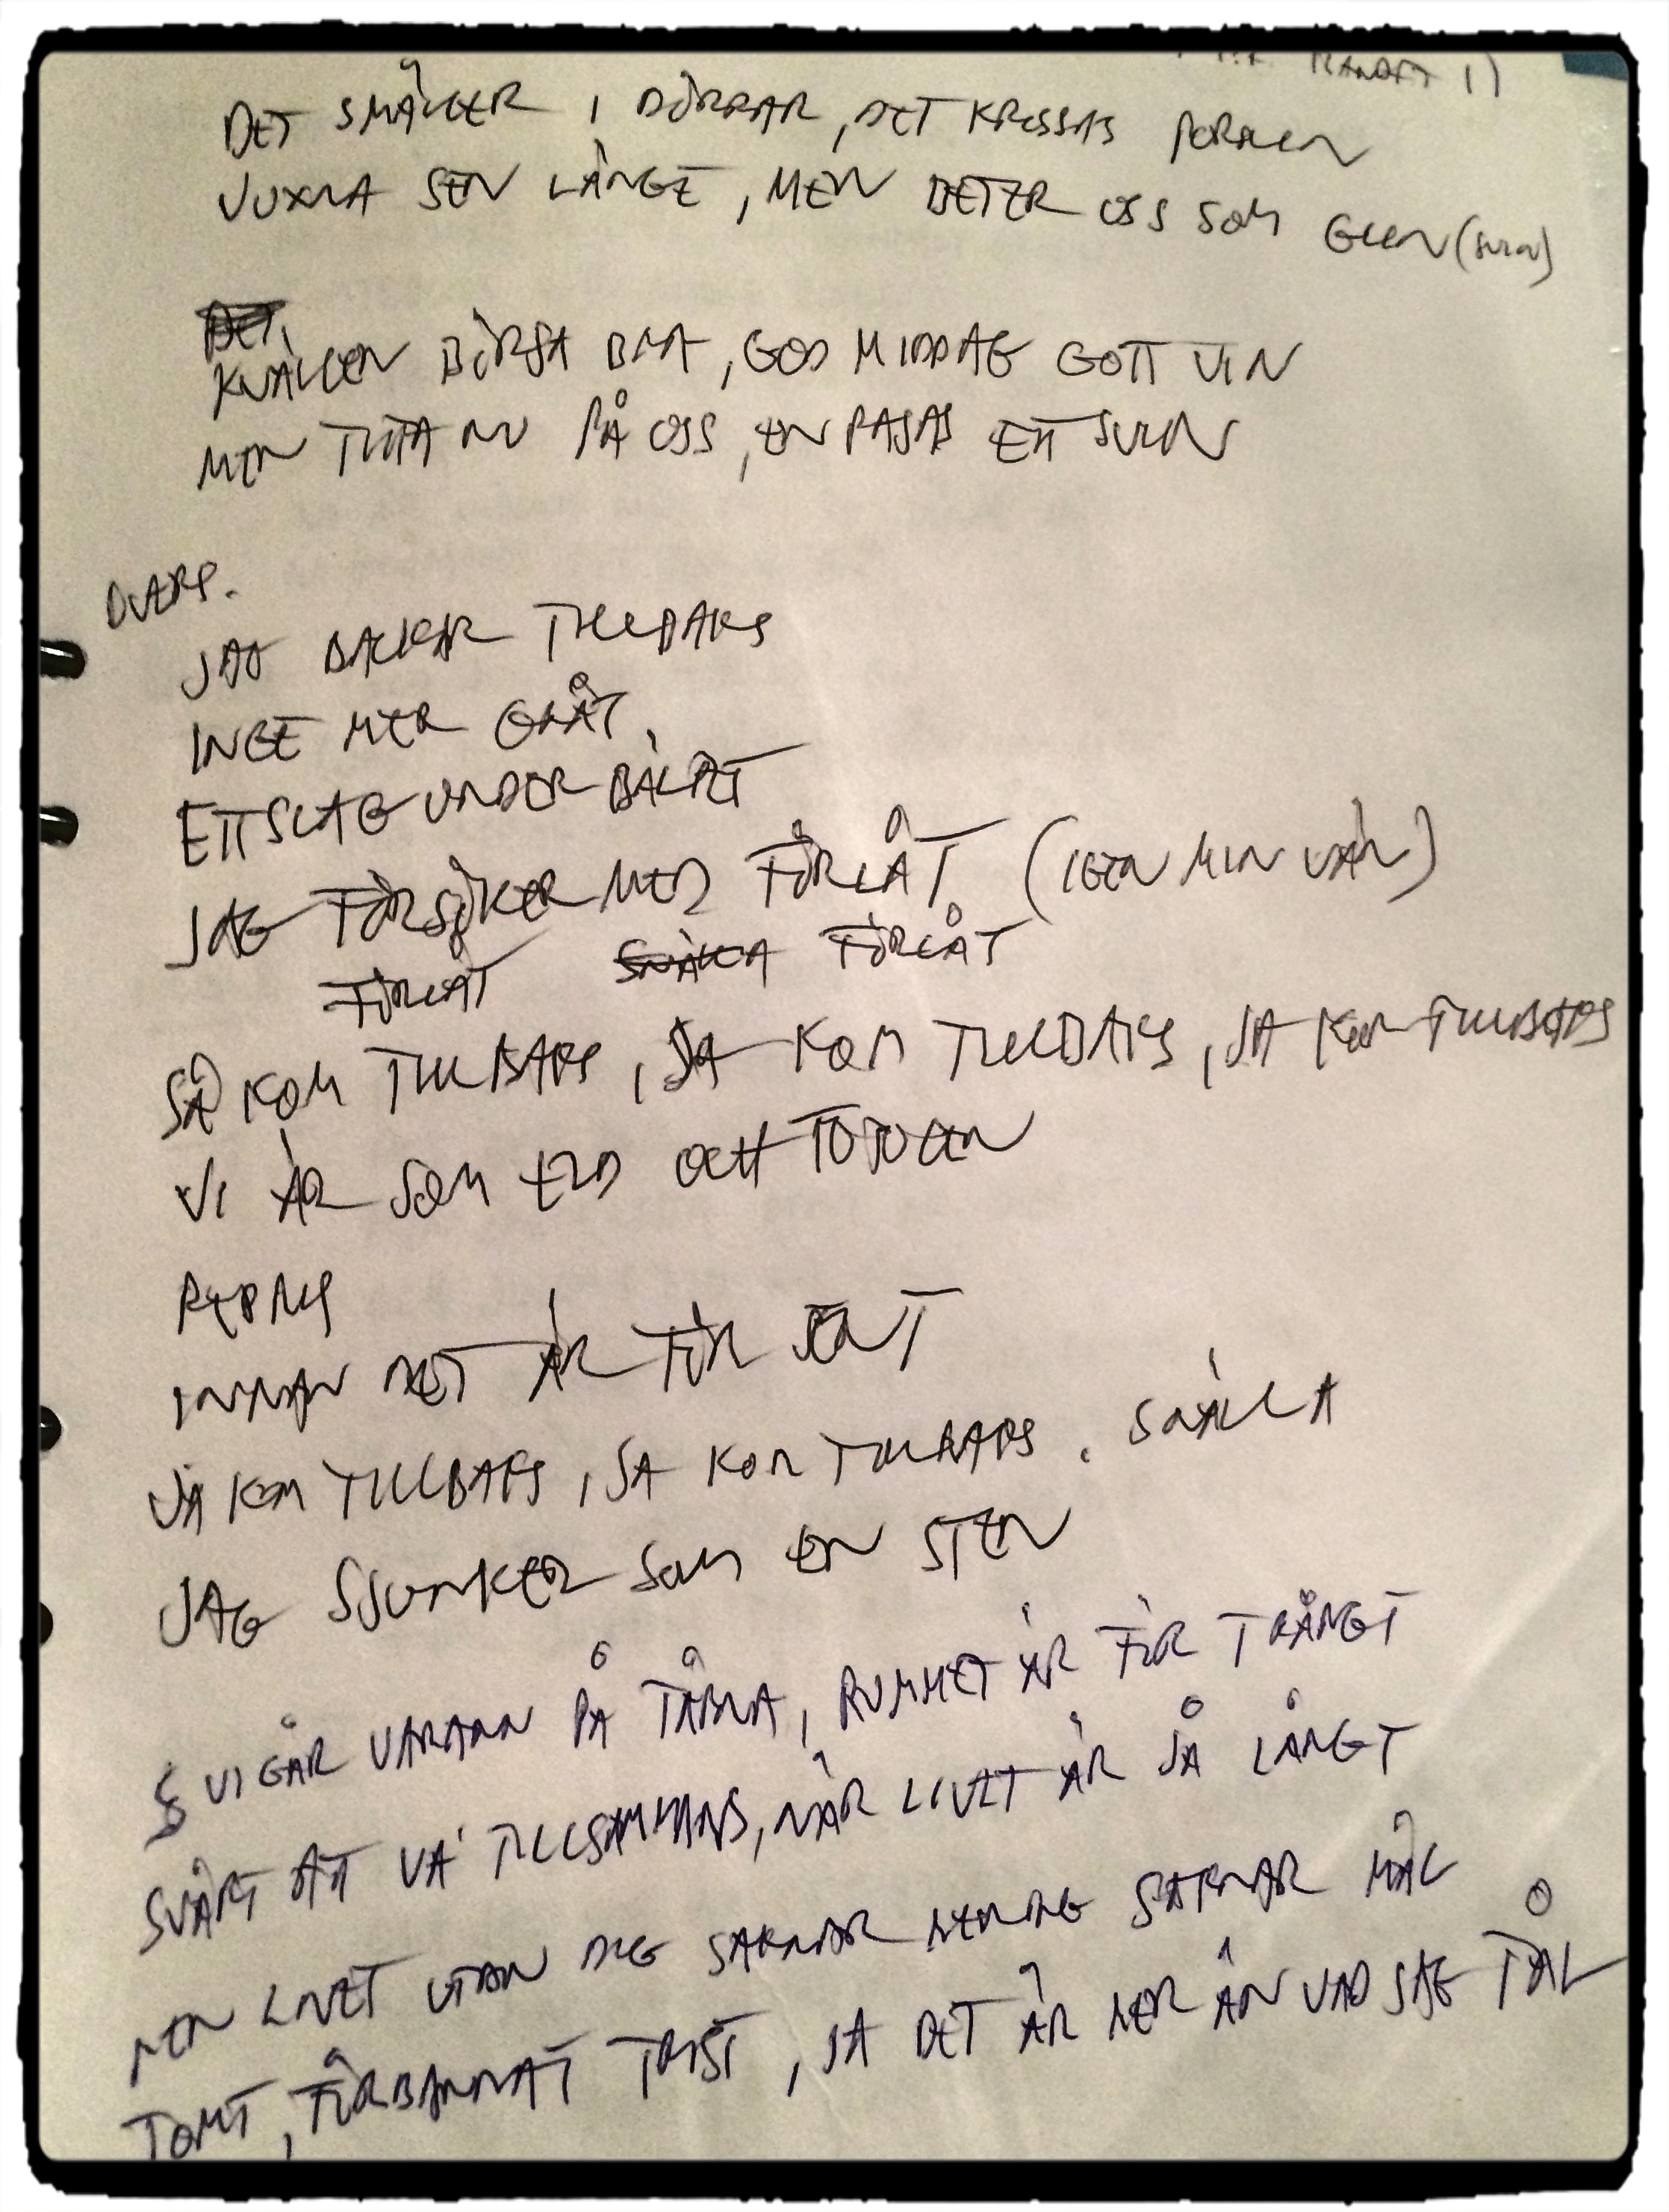 DET SMÄLLER I DÖRRAR, DET KROSSAS PORSLIN
VUXNA SEN LÄNGE, MEN BETER OSS SOM (SVIN)
DET
KVÄLLEN BÖRJA BRA, GOD MIDDAG GOTT VIN
MEN TITTA NU PÅ OSS, EN PAJAS ETT SVIN
JAG BACKAR TILLBAKS
INGE MER GRÅT
ETT SLAG UNDER BÄLTET
JAG FÖRSÖKER MED FÖRLÅT (IGEN MIN VÄN)
FÖRLÅT SNÄLLA FÖRLÅT
SÅ KOM TILLBAKS, JA KOM TILLBAKS, JA KOM TILLBAKS
VI ÄR SOM ELD OCH
INNAN DET ÄR FÖR SENT
JA KOM TILLBAKS, JA KOM TILLBAKS, SNÄLLA
JAG SJUNKER SOM EN STEN
VI GÅR VARANN PÅ TÅRNA, RUMMET ÄR FÖR TRÅNGT
SVÅRT ATT VA' TILLSAMMANS, NÄR LIVET ÄR SÅ LÅNGT
MEN LIVET UTAN DIG SAKNAR MENING SAKNAR MÅL
TOMT, FÖRBANNAT TRIST, JA DET ÄR MER ÄN VAD JAG TÅL